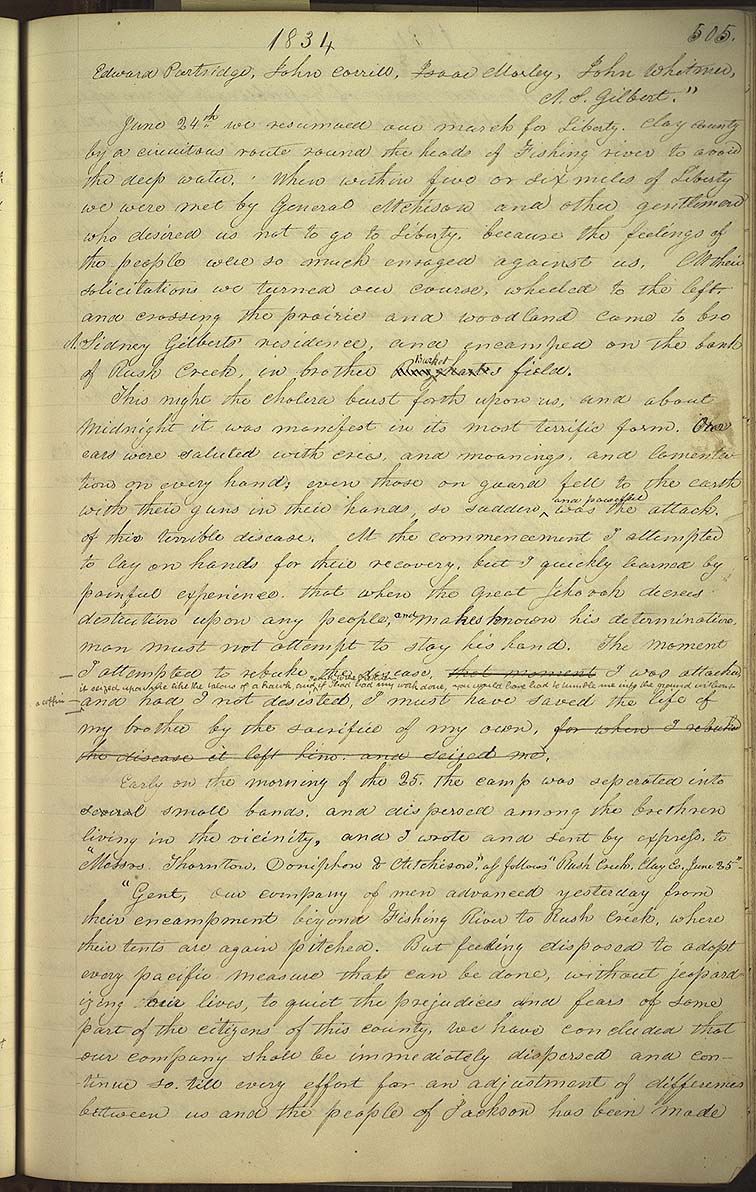 1834
505.
Edward Partridge, John Corrill, Isaac Morley, John Whitmer,
A. S. Gilbert."
June 24th we resumed our march for Liberty. Clay county
by a circuitous route round the heads of Fishing river to avoid
the deep water. When within five or six miles of Liberty
we were met by General Atchison and other gentlemen
who desired us not to go to Liberty, because the feelings of
the people were so much enraged against us. At their
solicitations we turned our course, wheeled to the left
and crossing the prairie and woodland came to bro
A. Sidney Gilberts residence, and encamped on the bank
of Rush Creek, in brother Burket field.
This night the cholera burst forth upon us, and about
midnight it was manifest in its most terrific form. Our
ears were saluted with cries, and moanings, and lamenta-
tions on every hand; even those on guard fell to the earth
with their guns in their hands, so sudden and powerful was the attack
of this terrible disease. At the commencement I attempted
to lay on hands for their recovery, but I quickly learned by
painful experience. that when the great Jehovah decrees
destruction upon any people, and makes known his determination,
man must not attempt to stay his hand. The moment
I attempted to rebuke the disease, that moment I was attacked
it seized upon me like the talons of a hawk, and if that had my work done, you would have had to tumble me into the ground without
a coffin
and had I not desisted, I must have saved the life of
my brother by the sacrifice of my own, for when I rebuked
the disease it left him. and seized me.
Early on the morning of the 25. the camp was seperated into
several small bands. and dispersed among the brethren
living in the vicinity, and I wrote and sent by express, to
"Messrs. Thornton, Doniphan & Atchison," as follows "Rush Creek, Clay Co. June 25"—
"Gent, our company of men advanced yesterday from
their encampment beyond Fishing River to Rush Creek, where
their tents are again pitched. But feeling disposed to adopt
every pacific measure that can be done, without jeopard-
izing our lives, to quiet the prejudices and fears of some
part of the citizens of this county, we have concluded that
our company shall be immediately dispersed and con-
-tinue so. till every effort for an adjustment of differences
between us and the people of Jackson has been made